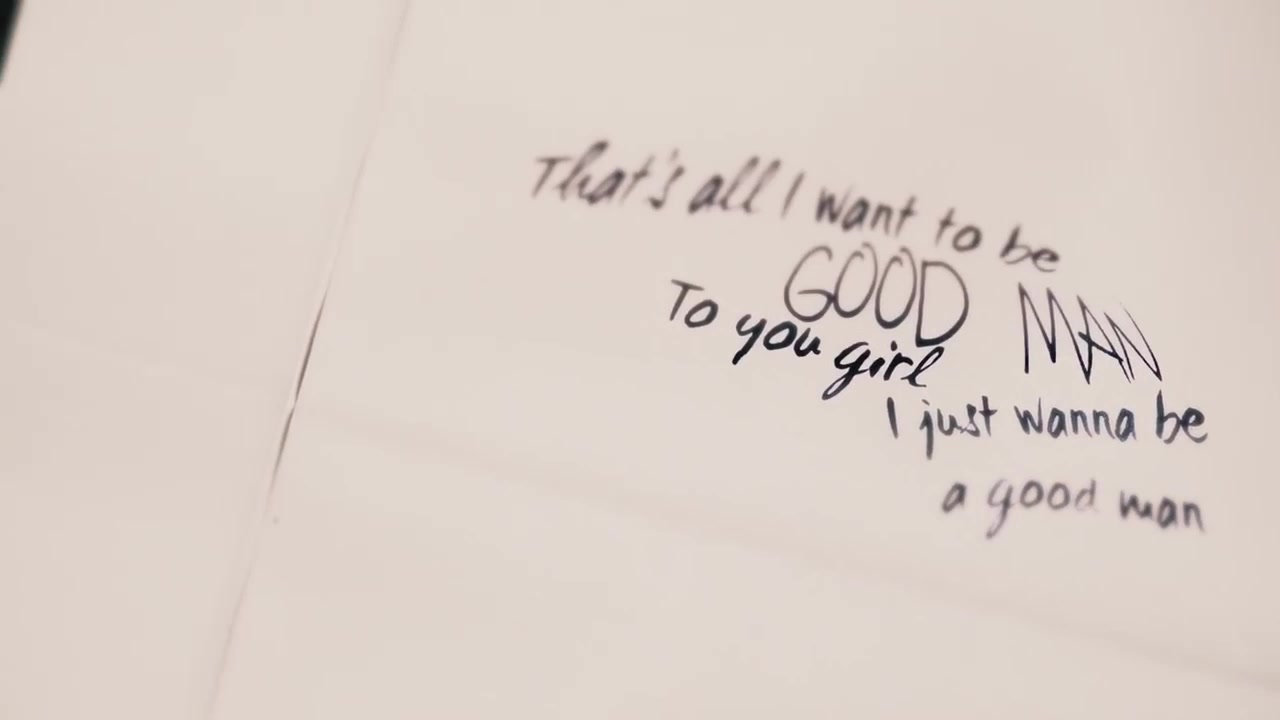 That's all I want to be
GOOD MAN
To you girl
I just wanna be
a good man